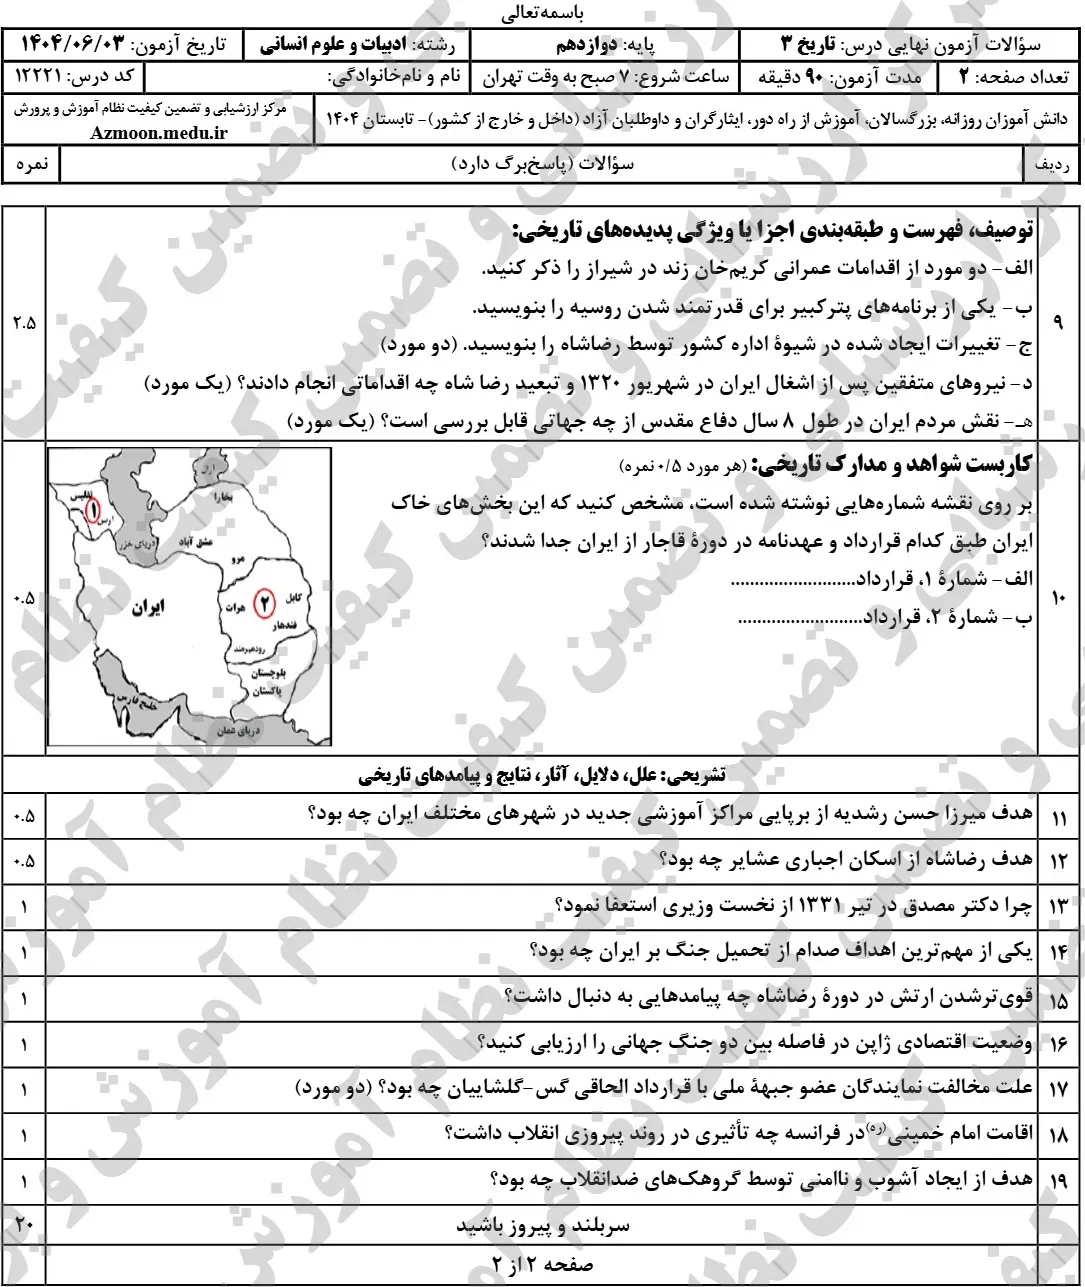 باسمه‌تعالی
سؤالات آزمون نهایی درس: تاریخ ۳
پایه: دوازدهم
رشته: ادبیات و علوم انسانی
تاریخ آزمون: ۱۴۰۴/۰۶/۰۳
تعداد صفحه: ۲
مدت آزمون: ۹۰ دقیقه
ساعت شروع: ۷ صبح به وقت تهران
نام و نام‌خانوادگی:
کد درس: ۱۲۲۲۱
دانش آموزان روزانه، بزرگسالان، آموزش از راه دور، ایثارگران و داوطلبان آزاد (داخل و خارج از کشور)- تابستان ۱۴۰۴
مرکز ارزشیابی و تضمین کیفیت نظام آموزش و پرورش
Azmoon.medu.ir
ردیف
سؤالات (پاسخ‌برگ دارد)
نمره
۹
توصیف، فهرست و طبقه‌بندی اجزا یا ویژگی پدیده‌های تاریخی:
الف- دو مورد از اقدامات عمرانی کریم‌خان زند در شیراز را ذکر کنید.
ب- یکی از برنامه‌های پترکبیر برای قدرتمند شدن روسیه را بنویسید.
ج- تغییرات ایجاد شده در شیوۀ اداره کشور توسط رضاشاه را بنویسید. (دو مورد)
د- نیروهای متفقین پس از اشغال ایران در شهریور ۱۳۲۰ و تبعید رضا شاه چه اقداماتی انجام دادند؟ (یک مورد)
هـ- نقش مردم ایران در طول ۸ سال دفاع مقدس از چه جهاتی قابل بررسی است؟ (یک مورد)
۲.۵
۱۰
کاربست شواهد و مدارک تاریخی: (هر مورد ۰/۵ نمره)
بر روی نقشه شماره‌هایی نوشته شده است، مشخص کنید که این بخش‌های خاک
ایران طبق کدام قرارداد و عهدنامه در دورۀ قاجار از ایران جدا شدند؟
الف- شمارۀ ۱، قرارداد..........................
ب- شمارۀ ۲، قرارداد..........................
۰.۵
تفلیس
۱
ارس
دریای خزر
آرال
بخارا
عشق آباد
مرو
ایران
هرات
۲
کابل
قندهار
رودهیرمند
بلوچستان
پاکستان
خلیج فارس
دریای عمان
تشریحی: علل، دلایل، آثار، نتایج و پیامدهای تاریخی
۱۱ هدف میرزا حسن رشدیه از برپایی مراکز آموزشی جدید در شهرهای مختلف ایران چه بود؟ ۰.۵
۱۲ هدف رضاشاه از اسکان اجباری عشایر چه بود؟ ۰.۵
۱۳ چرا دکتر مصدق در تیر ۱۳۳۱ از نخست وزیری استعفا نمود؟ ۱
۱۴ یکی از مهم‌ترین اهداف صدام از تحمیل جنگ بر ایران چه بود؟ ۱
۱۵ قوی‌ترشدن ارتش در دورۀ رضاشاه چه پیامدهایی به دنبال داشت؟ ۱
۱۶ وضعیت اقتصادی ژاپن در فاصله بین دو جنگ جهانی را ارزیابی کنید؟ ۱
۱۷ علت مخالفت نمایندگان عضو جبهۀ ملی با قرارداد الحاقی گس-گلشاییان چه بود؟ (دو مورد) ۱
۱۸ اقامت امام خمینی(ره) در فرانسه چه تأثیری در روند پیروزی انقلاب داشت؟ ۱
۱۹ هدف از ایجاد آشوب و ناامنی توسط گروهک‌های ضدانقلاب چه بود؟ ۱
سربلند و پیروز باشید ۲۰
صفحه ۲ از ۲